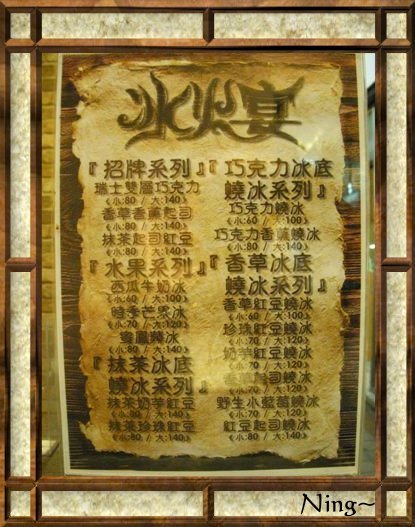 冰火宴
『招牌系列』
瑞士雙層巧克力
《小:80 / 大:140》
香草香蕉起司
《小:80 / 大:140》
抹茶起司紅豆
《小:80 / 大:140》
『水果系列』
西瓜牛奶冰
《小:60 / 大:100》
時季芒果冰
《小:70 / 大:120》
蜜鳳辣冰
《小:80 / 大:140》
『抹茶冰底
鐃冰系列』
抹茶奶芋紅豆
《小:80 / 大:140》
抹茶珍珠紅豆
《小:80 / 大:140》
『巧克力冰底
鐃冰系列』
巧克力鐃冰
《小:60 / 大:100》
巧克力香蕉鐃冰
《小:80 / 大:140》
『香草冰底
鐃冰系列』
香草紅豆鐃冰
《小:60 / 大:100》
珍珠紅豆鐃冰
《小:70 / 大:120》
奶芋紅豆鐃冰
《小:70 / 大:120》
起司鐃冰
《小:70 / 大:120》
野生小藍莓鐃冰
《小:70 / 大:120》
紅豆起司鐃冰
《小:70 / 大:120》
Ning~